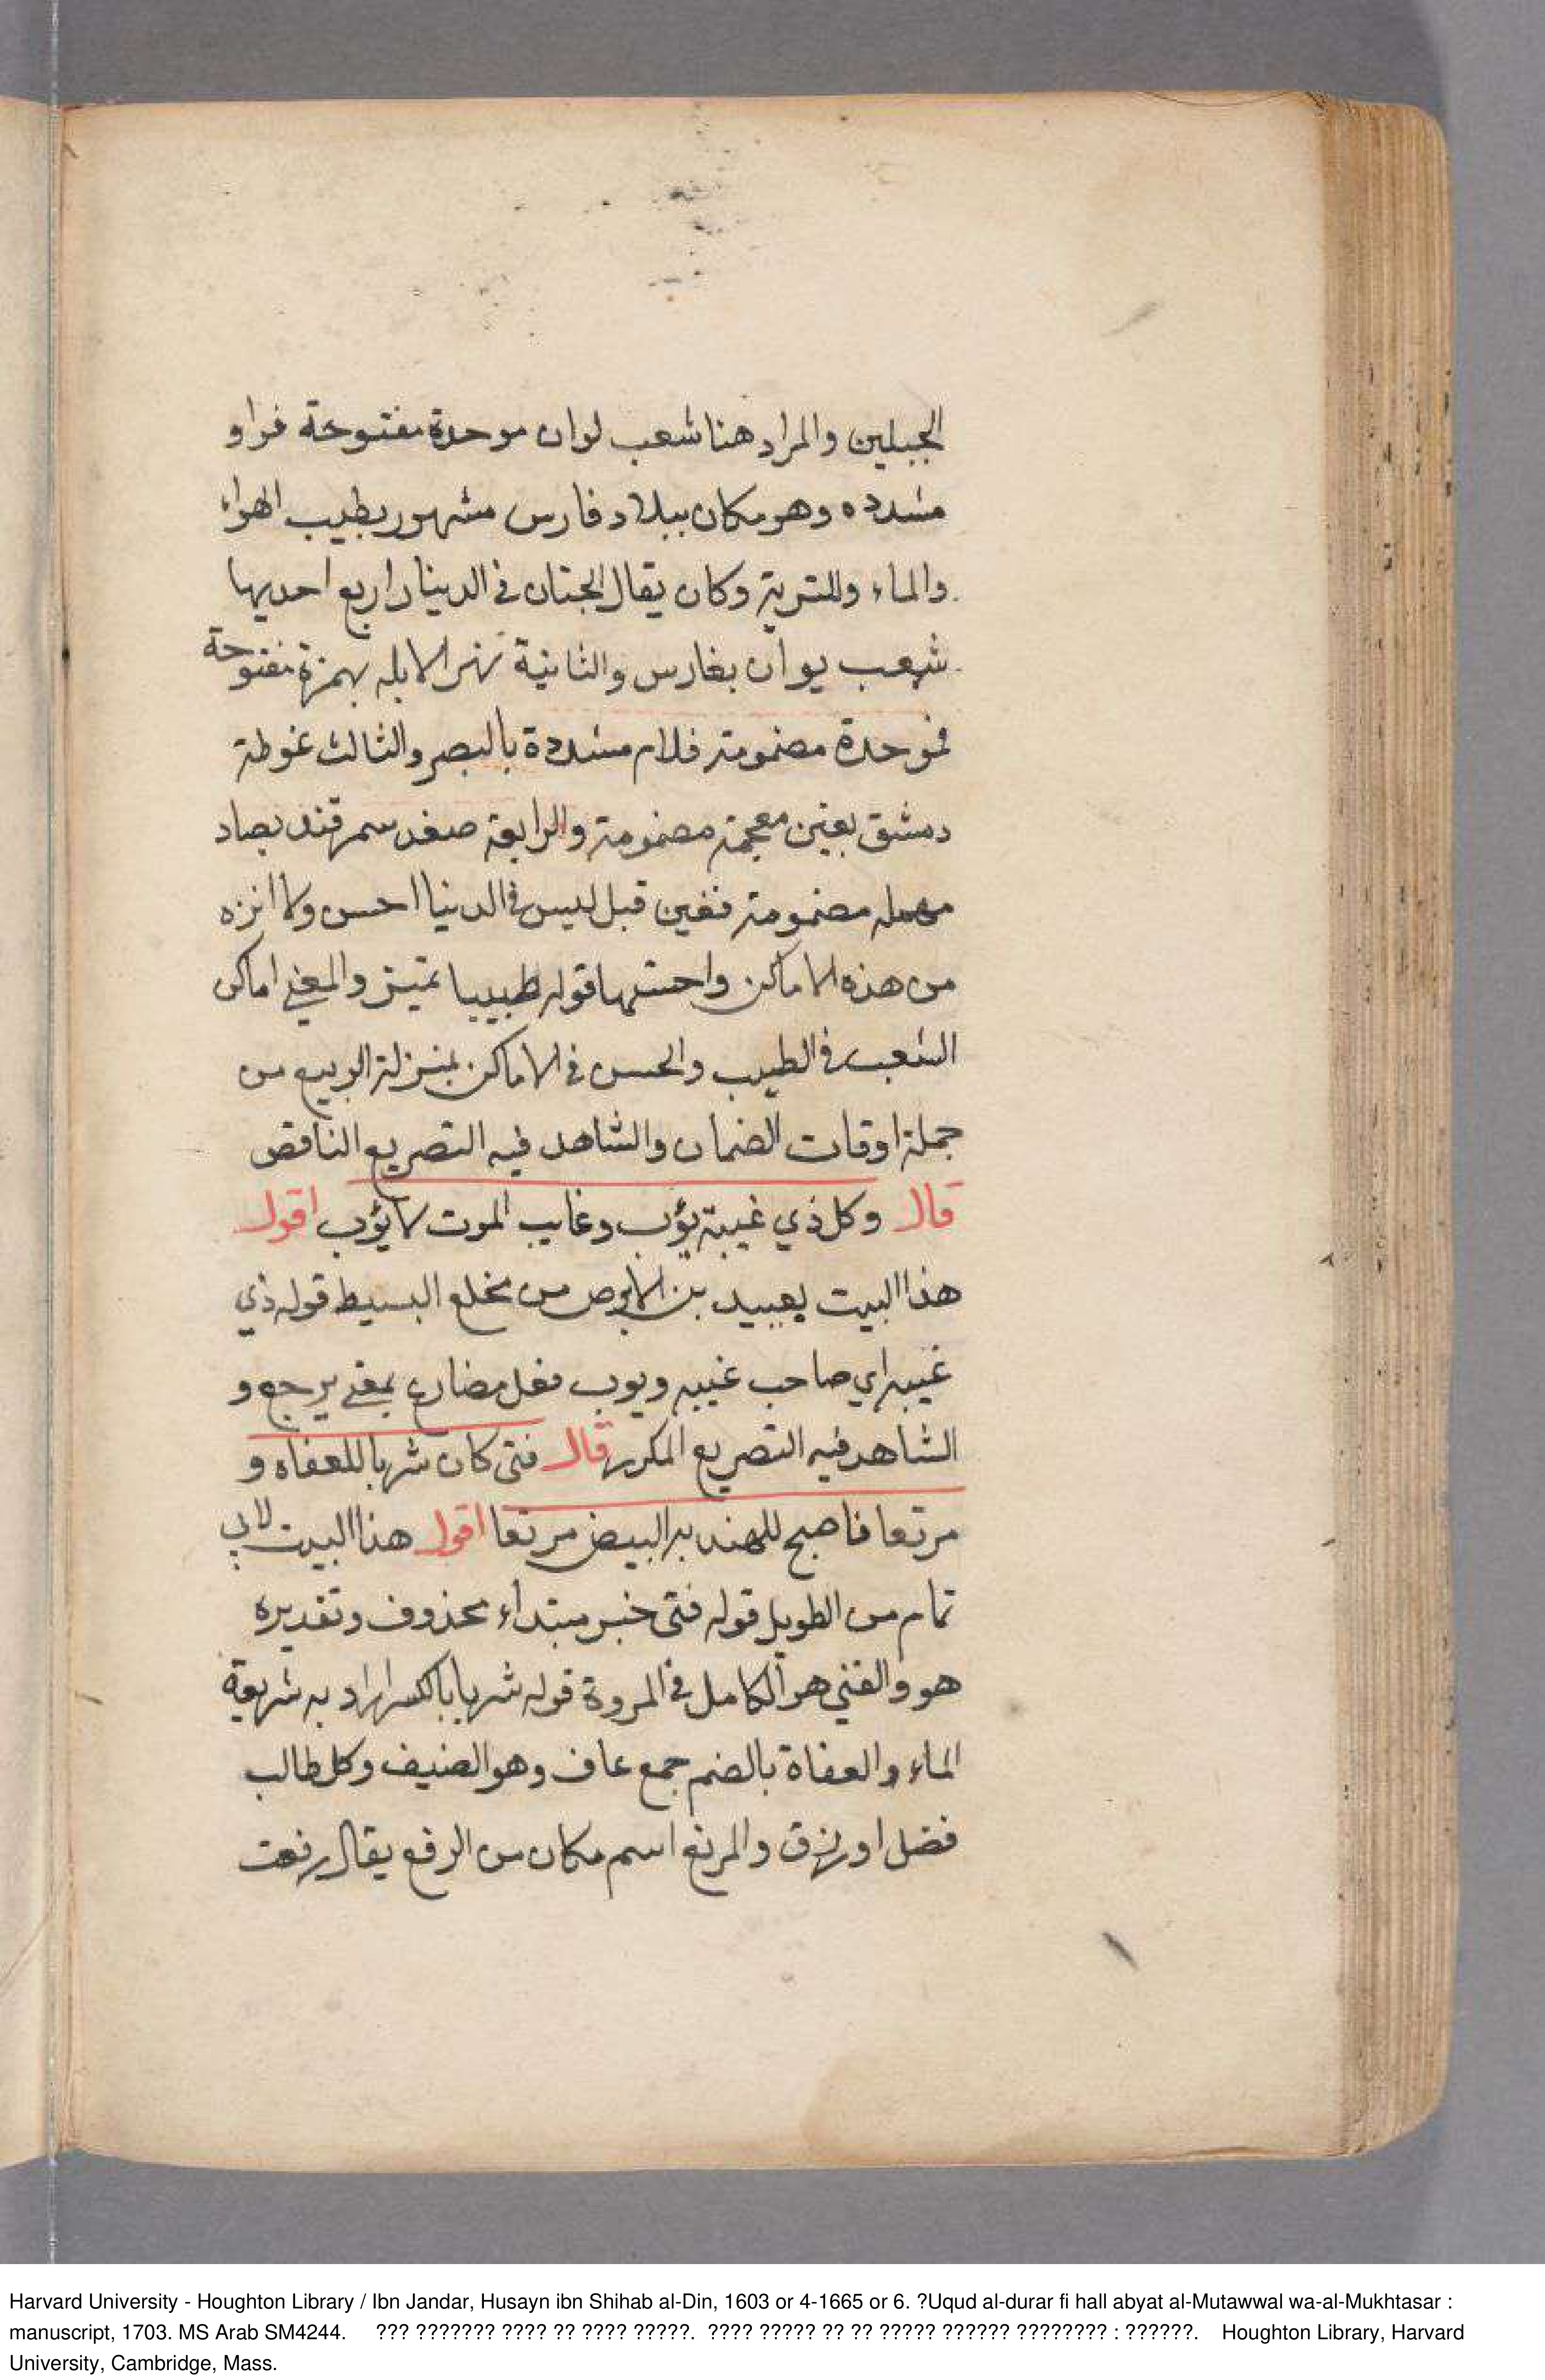 الجبلين والمراد هنا شعب لوان موحدة مفتوحة فواو
مشدده وهو مكان ببلاد فارس مشهور بطيب الهواء
والماء وللتربة وكان يقال الجنان في الدينا اربع احديها
شعب بوان بفارس والثانية نهر الابله بهمزة مفتوحة
فموحدة مضمومة فلام مشددة بالبصر والثالث غوطة
دمشق بغين معجمة مضمومة والرابعة صغد سمرقند بصاد
مهمله مضمومة فغين قبل ليس في الدنيا احسن ولا انزه
من هذه الاماكن واحسنها قوله طيبا تمييز والمعنى اماكن
الشعب في الطيب والحسن في الاماكن بمنزلة الربيع من
جملة اوقات الضمان والشاهد فيه التصريع الناقص
قال وكل ذي غيبة يؤب وغايب الموت لا يؤب اقول
هذا البيت لعبيد بن الابرص من مخلع البسيط قوله ذي
غيبه اي صاحب غيبه ويوب فعل مضارع بمعنى يرجع و
الشاهد فيه التصريع المكرر قال فتى كان شربا للعفاه و
مرتعا فاصبح للهنديه البيض مرتعا اقول هذا البيت لابي
تمام من الطويل قوله فتى خبر مبتداء محذوف وتقديره
هو والفتى هو الكامل في المروة قوله شربا بالكسر اراد به شريعة
الماء والعفاة بالضم جمع عاف وهو الضيف وكل طالب
فضل او رزق والمرتع اسم مكان من الرفع يقال رفعت
Harvard University - Houghton Library / Ibn Jandar, Husayn ibn Shihab al-Din, 1603 or 4-1665 or 6. ?Uqud al-durar fi hall abyat al-Mutawwal wa-al-Mukhtasar :
manuscript, 1703. MS Arab SM4244. ??? ??????? ???? ?? ???? ?????. ???? ????? ?? ?? ????? ?????? ???????? : ??????. Houghton Library, Harvard
University, Cambridge, Mass.